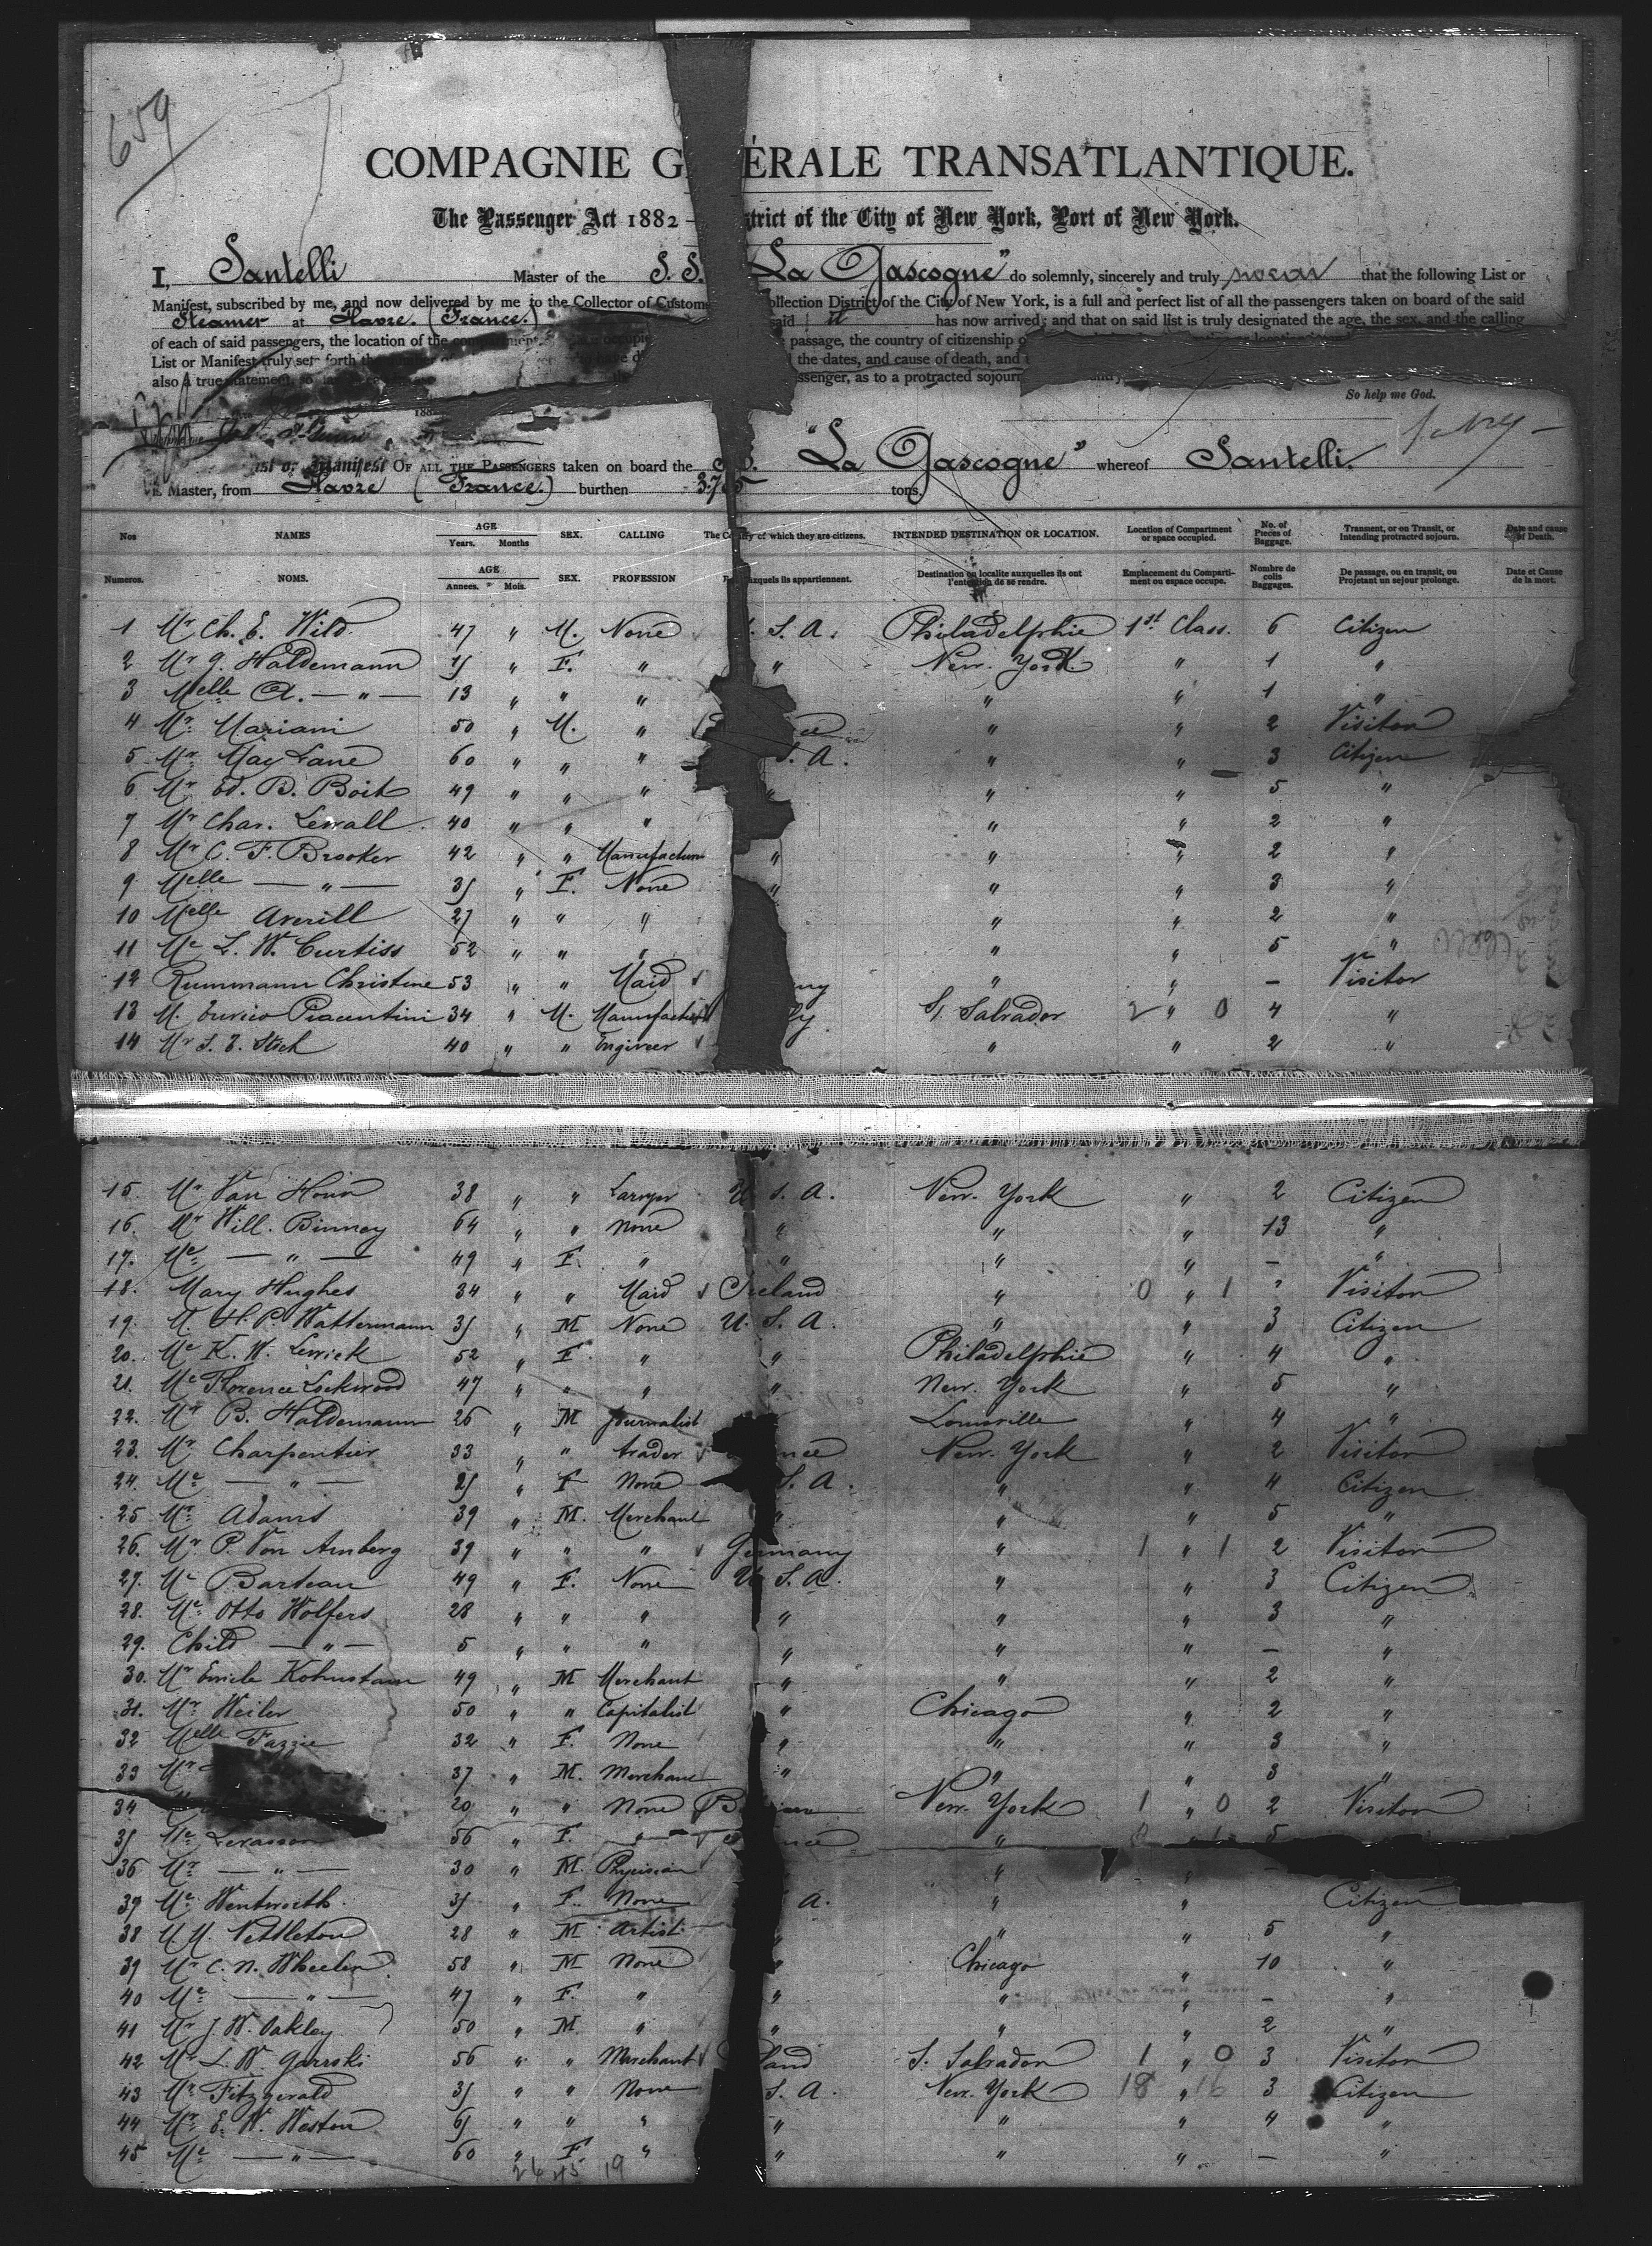 659
COMPAGNIE G ÉRALE TRANSATLANTIQUE.
The Passenger Act 1882 — strict of the City of New York, Port of New York.
I, Santelli Master of the S. S. La Gascogne" do solemnly, sincerely and truly swear that the following List or
Manifest, subscribed by me, and now delivered by me to the Collector of Custom ollection District of the City of New York, is a full and perfect list of all the passengers taken on board of the said
Steamer at Havre. (France.) said it has now arrived; and that on said list is truly designated the age, the sex, and the calling
of each of said passengers, the location of the passage, the country of citizenship
List or Manifest truly sets forth the the dates, and cause of death, and
also a true statement, so ssenger, as to a protracted sojourn
So help me God.
Manifest OF ALL THE PASSENGERS taken on board the "La Gascogne" whereof Santelli.
Master, from Havre (France.) burthen tons.
Nos NAMES AGE Years. Months SEX. CALLING The Co ry of which they are citizens. INTENDED DESTINATION OR LOCATION. Location of Compartment or space occupied. No. of Pieces of Baggage. Transient, or on Transit, or Intending protracted sojourn. Date and cause of Death.
Numeros. NOMS. AGE Annees. Mois. SEX. PROFESSION auxquels ils appartiennent. Destination ou localite auxquelles ils ont l'intention de se rendre. Emplacement du Comparti-ment ou espace occupe. Nombre de colis Baggages. De passage, ou en transit, ou Projetant un sejour prolonge. Date et Cause de la mort.
1 Mr Ch. E. Wild 47 " M. None S. A. Philadelphie 1st Class. 6 Citizen
2 Mr J. Haldemann 15 " F. " " New. York " 1 "
3 Melle A. — " — 13 " " " " " 1 "
4 Mr Mariani 50 " M. " ce " " 2 Visitor
5 Mr May Lane 60 " " " S. A. " " 3 Citizen
6 Mr Ed. D. Boit 49 " " " " " " 5 "
7 Mr Char. Lewall 40 " " " " " 2 "
8 Mr C. F. Brooker 42 " " Manufacturer " " " 2 "
9 Melle — " — 35 " F. None " " " 3 "
10 Melle Averill 27 " " " " " 2 "
11 Me L. W. Curtiss 52 " " " " " 5 "
12 Rummann Christine 53 " " Maid ny " " — Visitor
13 M. Enrico Piacentini 34 " M. Manufacturer ly S. Salvador 2 " 0 4 "
14 Mr S. E. Stich 40 " " Engineer " " 2 "
15. Mr Van Horn 38 " " Lawyer U. S. A. New. York " 2 Citizen
16. Mr Will. Binney 64 " " None " " " 13 "
17. Me — " — 49 " F. " " " " — "
18. Mary Hughes 34 " " Maid Ireland " 0 " 1 Visitor
19. M. H. P. Wattermann 35 " M None U. S. A. " " 3 Citizen
20. Me K. W. Lewick 52 " F. " " Philadelphie " 4 "
21. Me Florence Lockwood 47 " " " " New. York " 5 "
22. Mr B. Haldemann 26 " M Journalist Louisville " 4 "
23. Mr Charpentier 33 " " trader nce New. York " 2 Visitor
24. Me — " — 25 " F None S. A. " " 4 Citizen
25 Mr Adams 39 " M. Merchant " " " 5 "
26. Mr P. Von Arnberg 39 " " " Germany " 1 " 1 2 Visitor
27. Me Barteau 49 " F. None U. S. A. " " 3 Citizen
28. Me Otto Wolfers 28 " " " " " " 3 "
29. Child — " — 5 " " " " " " — "
30. Mr Emile Kohnstam 49 " M Merchant " " " 2 "
31. Mr Weiler 50 " " Capitalist " Chicago " 2 "
32 Melle Fazzie 32 " F. None " " " 3 "
33 Mr 37 " M. Merchant " " " 3 "
34 20 " " None New. York 1 " 0 2 Visitor
35 Me Levasson 56 " F. " nce " 0 " 1 5
36 Mr — " — 30 " M. Physician " " —
37 Me Wentworth 35 " F. None A. " " Citizen
38 M. M. Nettleton 28 " M Artist " " " 5 "
39 Mr C. N. Wheeler 58 " M None " Chicago " 10 "
40 Me — " — 47 " F. " " " " — "
41 Mr J. W. Oakley 50 " M " " " " 2 "
42 Mr L. W. Garrski 56 " " Merchant land S. Salvador 1 " 0 3 Visitor
43 Mr Fitzgerald 35 " " None S. A. New. York 18 " 16 3 Citizen
44 Mr E. W. Weston 65 " " " " " " 4 "
45 Me — " — 60 " F. " " " " — "
26 45 19